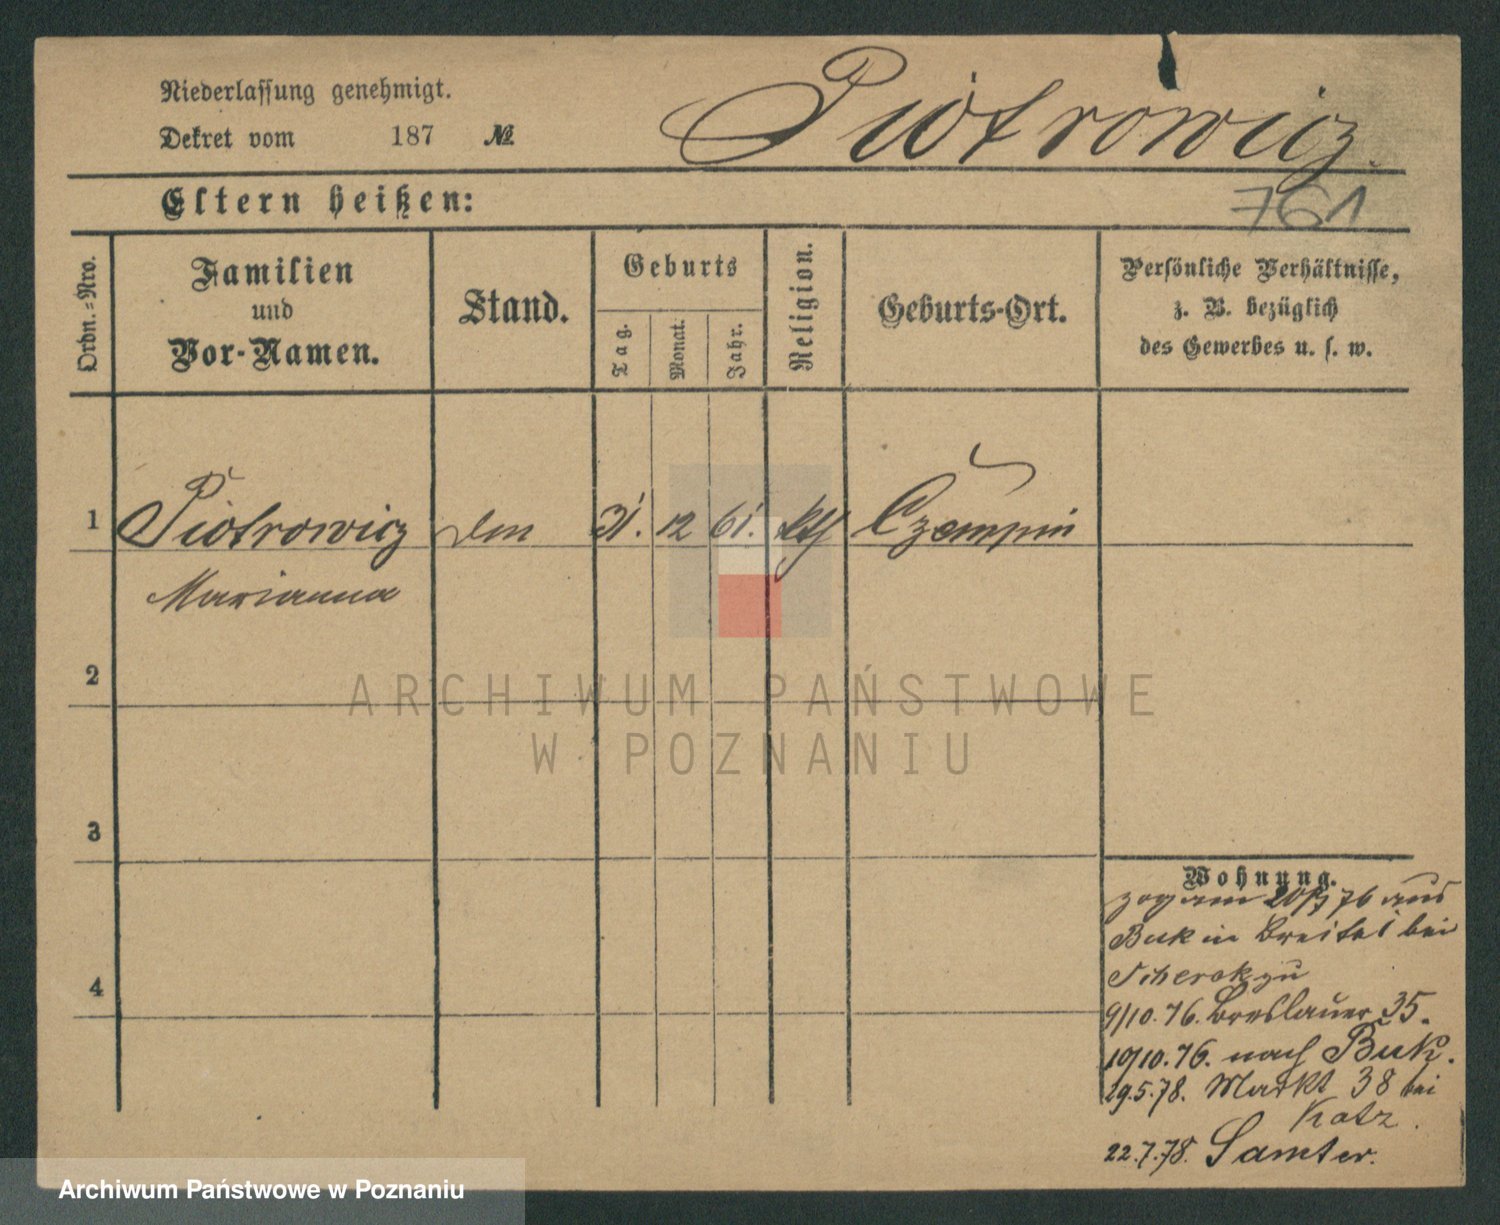 Niederlassung genehmigt.
Dekret vom 187 №
Piotrowicz
Eltern heißen:
761
Ordn.-Nro.
Familien
und
Vor-Namen.
Stand.
Geburts
Tag.
Monat.
Jahr.
Religion.
Geburts-Ort.
Persönliche Verhältnisse,
z. B. bezüglich
des Gewerbes u. s. w.
1 Piotrowicz 31. 12 61. kth Czempin
Marianna
2
3
4
Wohnung.
zog am 76 aus
Buk in bei
zu
9/10.76. Breslauer 35.
10/10.76. nach Buk.
29.5.78. Markt 38 bei
Katz.
22.7.78. Samter.
ARCHIWUM PAŃSTWOWE
W POZNANIU
Archiwum Państwowe w Poznaniu